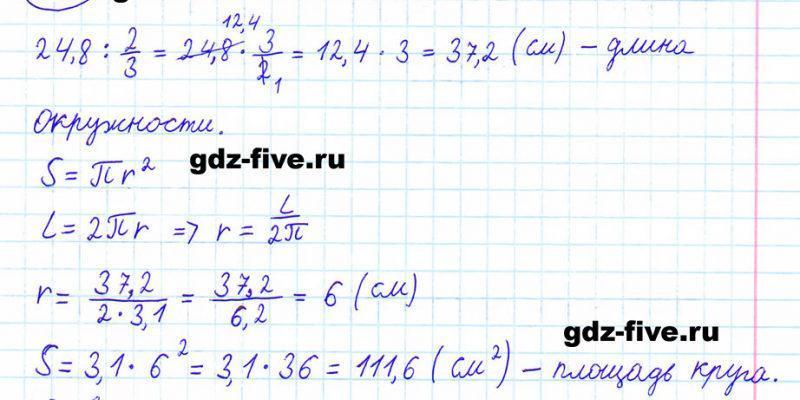 12,4
24,8 : 2/3 = 24,8 · 3/2 1 = 12,4 · 3 = 37,2 (см) – длина
окружности.
gdz-five.ru
S = πr²
L = 2πr => r = L/2π
r = 37,2/2·3,1 = 37,2/6,2 = 6 (см)
gdz-five.ru
S = 3,1 · 6² = 3,1 · 36 = 111,6 (см²) – площадь круга.